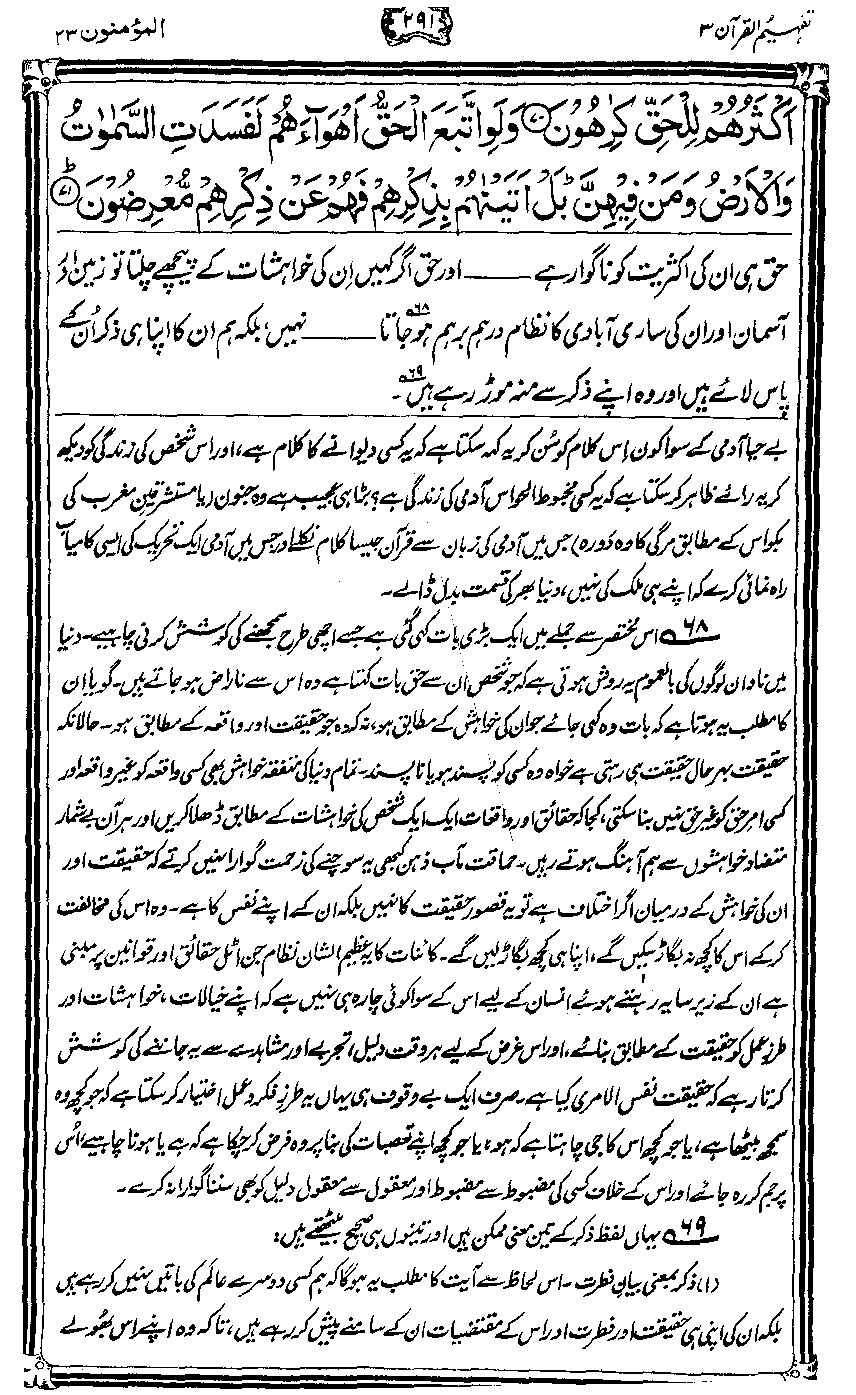 تفہیم القرآن ۳
۲۹۱
المؤمنون ۲۳
اَكْثَرُهُمْ لِلْحَقِّ كٰرِهُوْنَ ۷۰ وَلَوِ اتَّبَعَ الْحَقُّ اَهْوَآءَهُمْ لَفَسَدَتِ السَّمٰوٰتُ
وَالْاَرْضُ وَمَنْ فِيْهِنَّ ؕ بَلْ اَتَيْنٰهُمْ بِذِكْرِهِمْ فَهُمْ عَنْ ذِكْرِهِمْ مُّعْرِضُوْنَ ۷۱ ؕ
حق ہی ان کی اکثریت کو ناگوار ہے ——— اور حق اگر کہیں اِن کی خواہشات کے پیچھے چلتا تو زمین اور
آسمان اور ان کی ساری آبادی کا نظام درہم برہم ہو جاتا ۶۸ ——— نہیں، بلکہ ہم ان کا اپنا ہی ذکر اُن کے
پاس لائے ہیں اور وہ اپنے ذکر سے منہ موڑ رہے ہیں ۶۹۔
بے حیا آدمی کے سوا کون اِس کلام کو سُن کر یہ کہہ سکتا ہے کہ یہ کسی دیوانے کا کلام ہے، اور اس شخص کی زندگی کو دیکھ
کر یہ رائے ظاہر کر سکتا ہے کہ یہ کسی مخبوط الحواس آدمی کی زندگی ہے؟ بڑا ہی عجیب ہے وہ جنون (یا مستشرقینِ مغرب کی
بکواس کے مطابق مرگی کا وہ دَورہ) جس میں آدمی کی زبان سے قرآن جیسا کلام نکلے اور جس میں آدمی ایک تحریک کی ایسی کامیاب
راہ نمائی کرے کہ اپنے ہی ملک کی نہیں، دنیا بھر کی قسمت بدل ڈالے۔
۶۸ اس مختصر سے جملے میں ایک بڑی بات کہی گئی ہے جسے اچھی طرح سمجھنے کی کوشش کرنی چاہیے۔ دنیا
میں نادان لوگوں کی بالعموم یہ روش ہوتی ہے کہ جو شخص ان سے حق بات کہتا ہے وہ اس سے ناراض ہو جاتے ہیں۔ گویا اِن
کا مطلب یہ ہوتا ہے کہ بات وہ کہی جائے جو ان کی خواہش کے مطابق ہو، نہ کہ وہ جو حقیقت اور واقعہ کے مطابق ہو۔ حالانکہ
حقیقت بہرحال حقیقت ہی رہتی ہے خواہ وہ کسی کو پسند ہو یا ناپسند۔ تمام دنیا کی متفقہ خواہش بھی کسی واقعہ کو غیر واقعہ اور
کسی امرِ حق کو غیر حق نہیں بنا سکتی، کجا کہ حقائق اور واقعات ایک ایک شخص کی خواہشات کے مطابق ڈھلا کریں اور ہر آن بے شمار
متضاد خواہشوں سے ہم آہنگ ہوتے رہیں۔ حماقت مآب ذہن کبھی یہ سوچنے کی زحمت گوارا نہیں کرتے کہ حقیقت اور
ان کی خواہش کے درمیان اگر اختلاف ہے تو یہ قصور حقیقت کا نہیں بلکہ ان کے اپنے نفس کا ہے۔ وہ اس کی مخالفت
کرکے اس کا کچھ نہ بگاڑ سکیں گے، اپنا ہی کچھ بگاڑ لیں گے۔ کائنات کا یہ عظیم الشان نظام جن اٹل حقائق اور قوانین پر مبنی
ہے ان کے زیرِ سایہ رہتے ہوئے انسان کے لیے اس کے سوا کوئی چارہ ہی نہیں ہے کہ اپنے خیالات، خواہشات اور
طرزِ عمل کو حقیقت کے مطابق بنائے، اور اس غرض کے لیے ہر وقت دلیل، تجربے اور مشاہدے سے یہ جاننے کی کوشش
کرتا رہے کہ حقیقت نفس الامری کیا ہے۔ صرف ایک بے وقوف ہی یہاں یہ طرزِ فکر و عمل اختیار کر سکتا ہے کہ جو کچھ وہ
سمجھ بیٹھا ہے، یا جو کچھ اس کا جی چاہتا ہے کہ ہو، یا جو کچھ اپنے تعصبات کی بنا پر وہ فرض کر چکا ہے کہ ہے یا ہونا چاہیے، اُس
پر جم کر رہ جائے اور اس کے خلاف کسی کی مضبوط سے مضبوط اور معقول سے معقول دلیل کو بھی سننا گوارا نہ کرے۔
۶۹ یہاں لفظ ذکر کے تین معنی ممکن ہیں اور تینوں ہی صحیح بیٹھتے ہیں:
(۱) ذکر بمعنی بیانِ فطرت۔ اس لحاظ سے آیت کا مطلب یہ ہوگا کہ ہم کسی دوسرے عالم کی باتیں نہیں کر رہے ہیں
بلکہ ان کی اپنی ہی حقیقت اور فطرت اور اس کے مقتضیات ان کے سامنے پیش کر رہے ہیں، تاکہ وہ اپنے اس بھولے